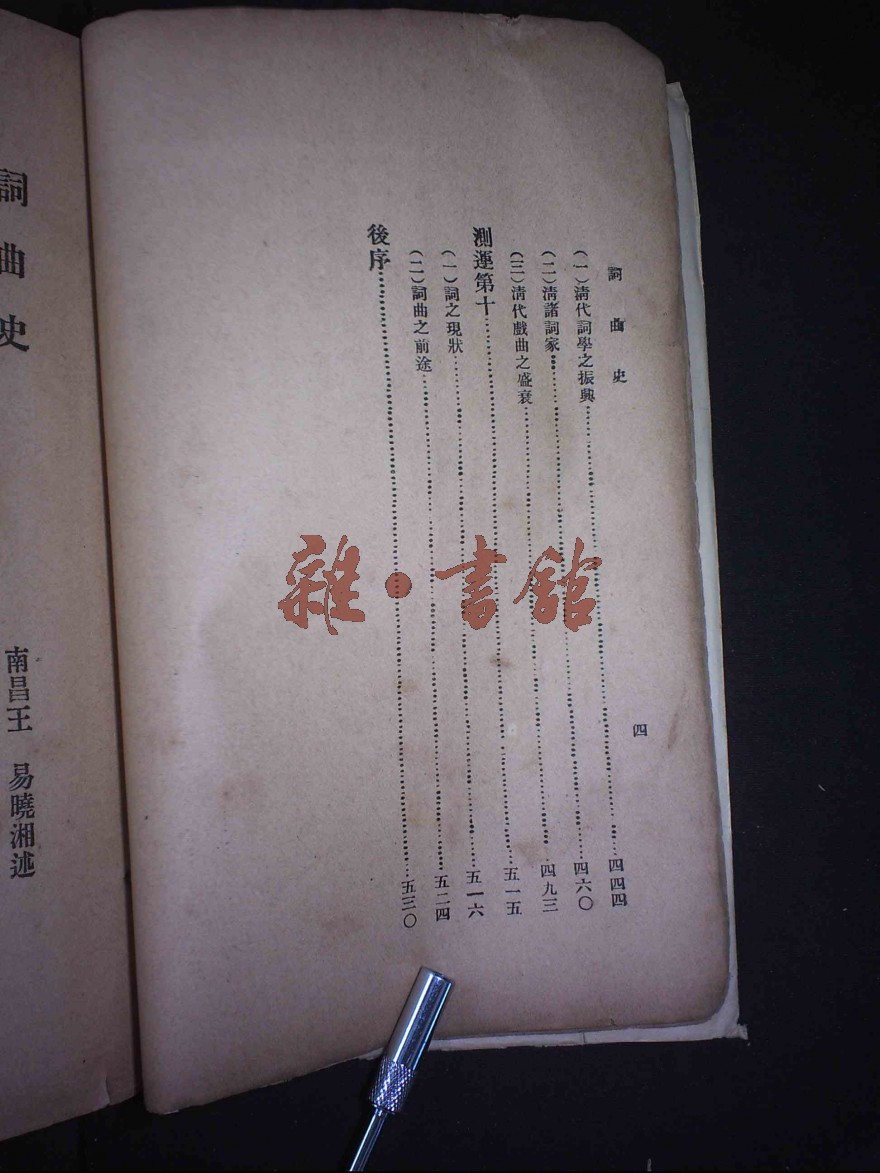 詞曲史
四
(一)清代詞學之振興……四四四
(二)清諸詞家……四六〇
(三)清代戲曲之盛衰……四九三
測運第十……五一五
(一)詞之現狀……五一六
(二)詞曲之前途……五二四
後序……五三〇
詞曲史
南昌王 易曉湘述
雜·書館